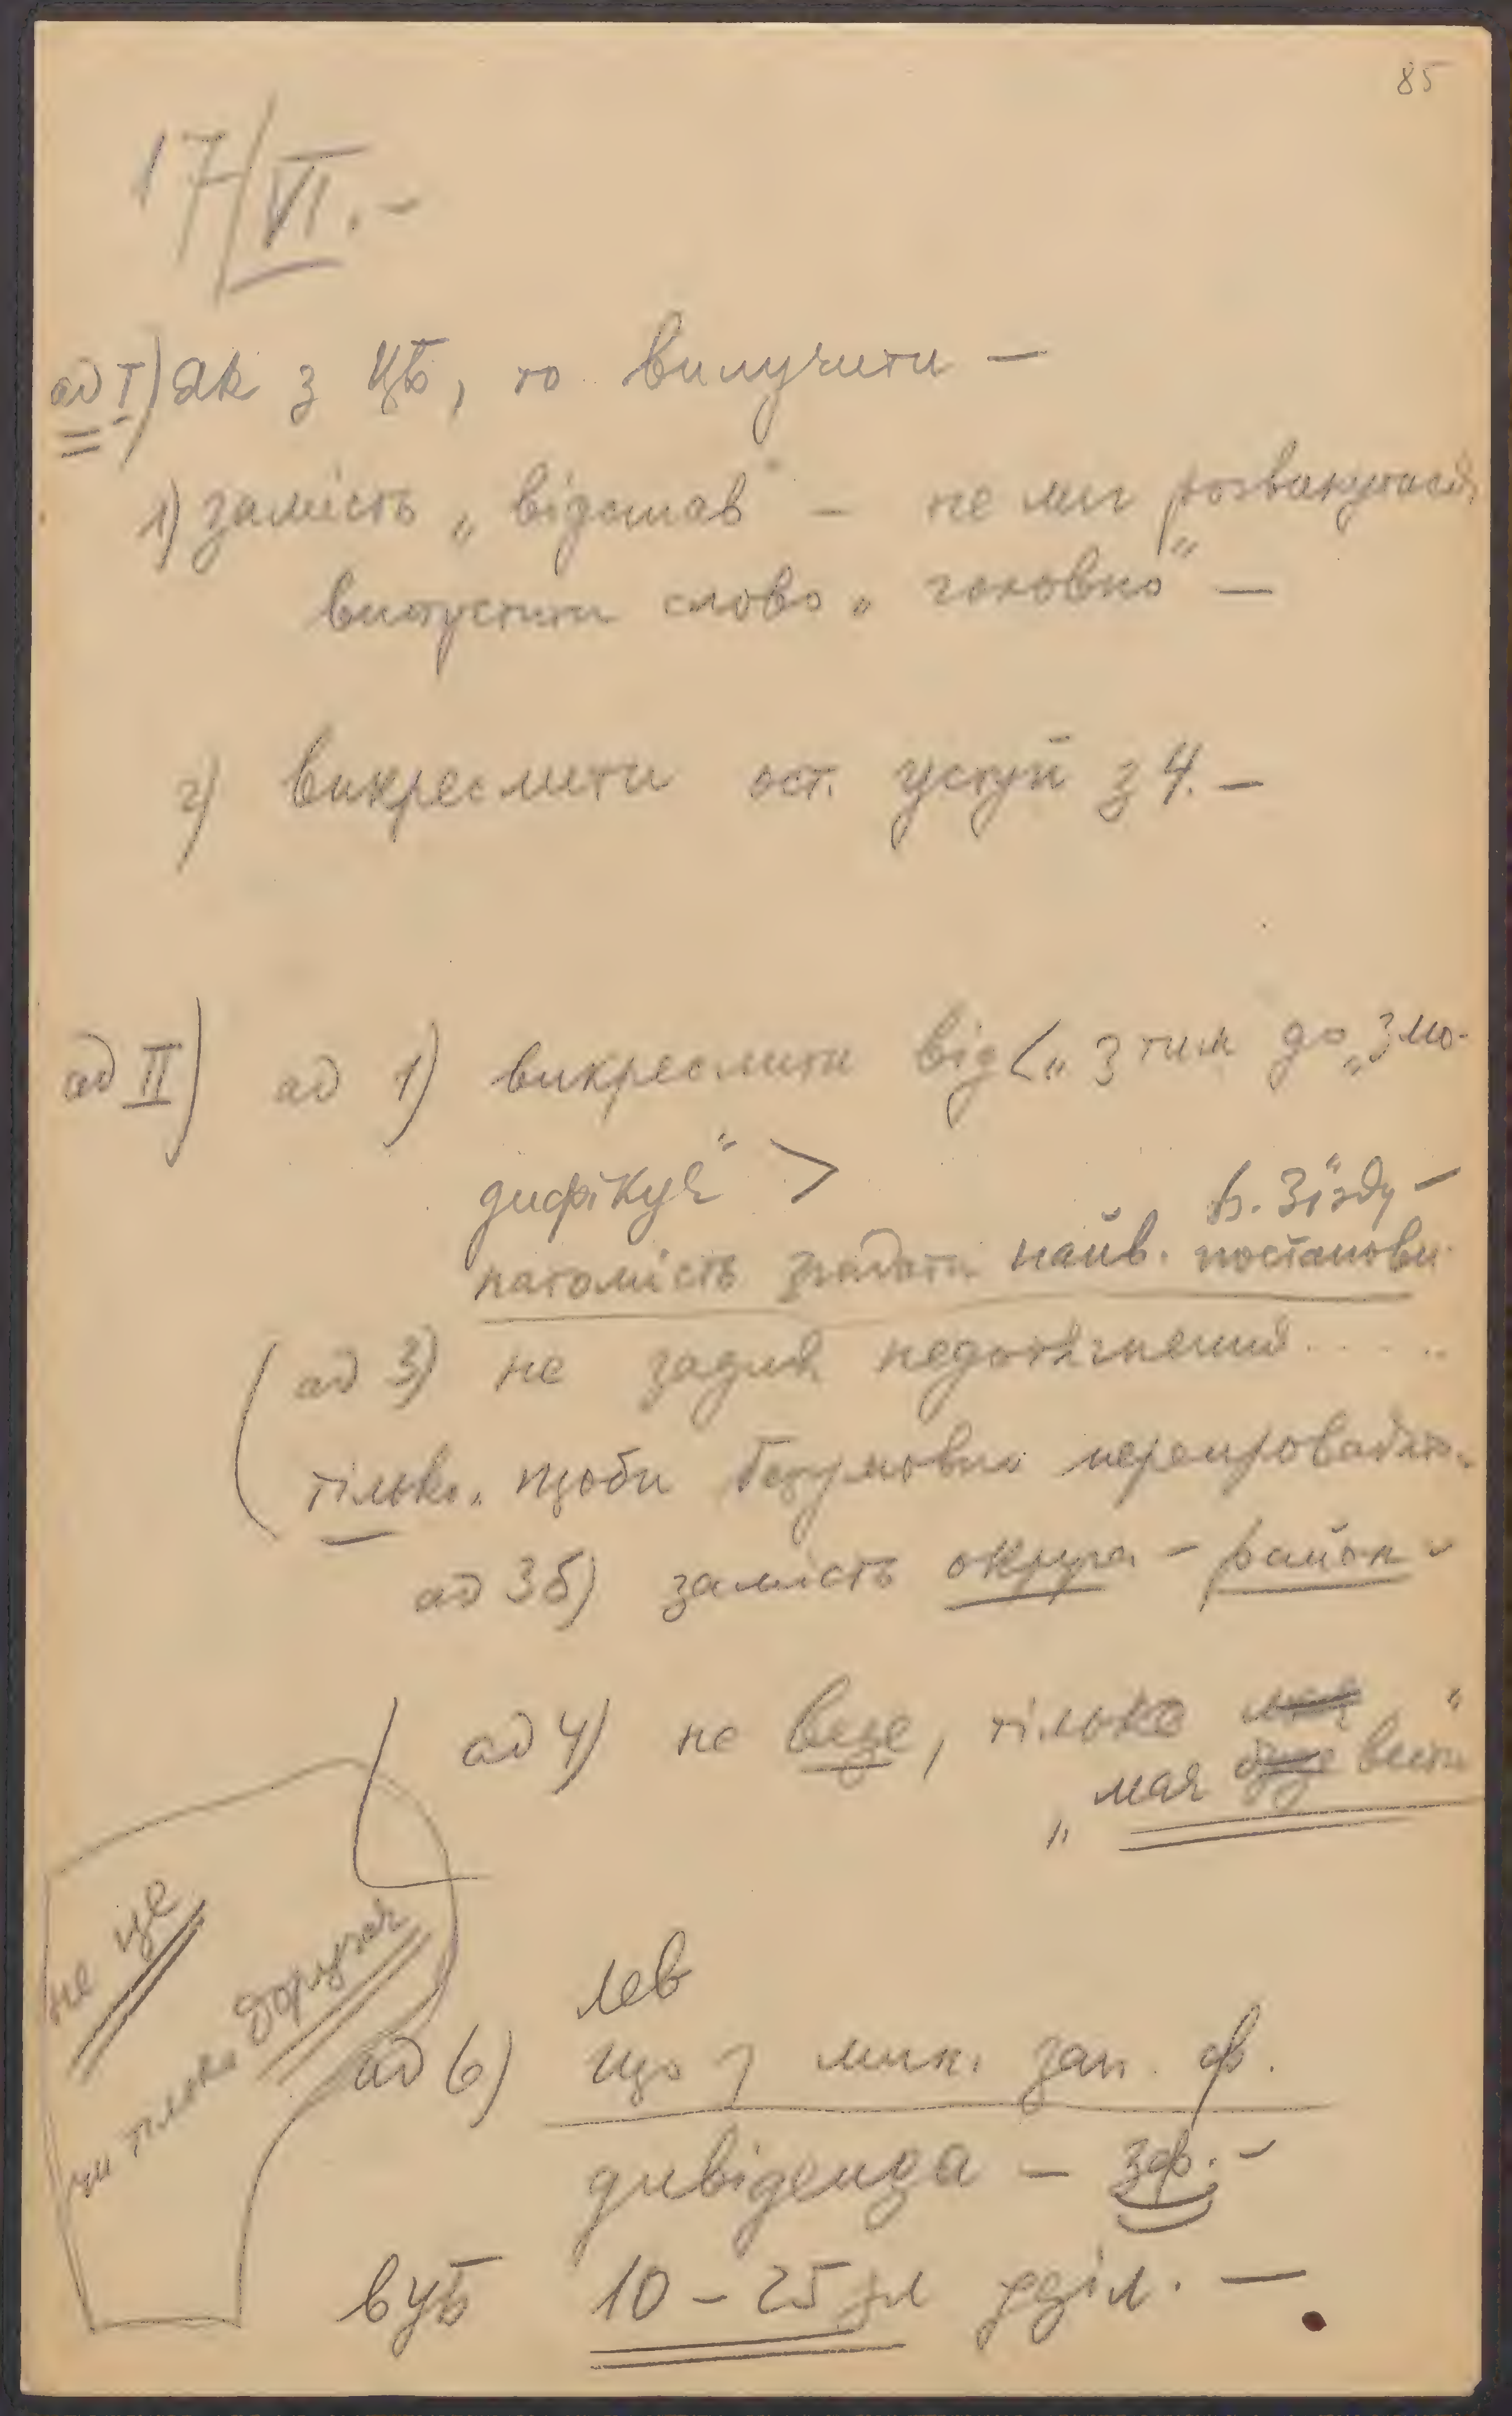 85
17/VI.–
ад I) Як з ЦБ, то вилучити –
1) замість „відстав" – не міг розвинутися
випустити слово „головно" –
2) викреслити ост. уступ з 4. –
ад II) ад 1) викреслити від <„з тим до „змо-
дифікує" >
в. Зїзду –
натомість згадати найв. постанови
(ад 3) не задля недотягнений.....
тілько „щоби безумовно перепровадити
ад 3б) замість округа – район –
ад 4) не веде, тілько має "
„ має буде вести
не це
ни тілько доручає
лев
ад 6) що з мин. зап. ф.
дивіденда – зф. –
вуБ 10 – 25 зл уділ. –